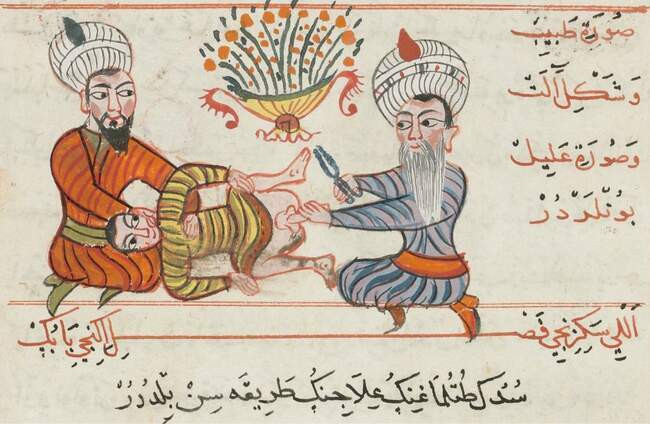 صُورَةِ طَبِيبْ
وَشَكْلِ آلَتْ
وَصُورَةِ عَلِيلْ
بُونْلَرْدُرْ
اَللِّي سَكِّزِنْجِي فَصْلِ اِكِنْجِي بَابُكْ
سُدَكْ طُتُلْمَاغِنِكْ عِلَاجِنِكْ طَرِيقَه سِنْ بِلْدُرُرْ